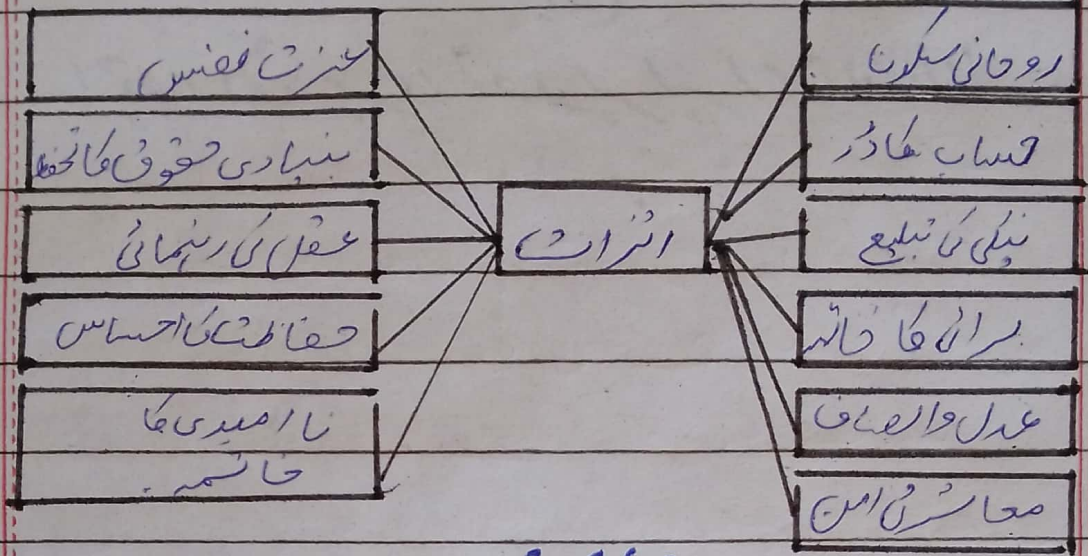 روحانی سکون
حساب کا ڈر
نیکی کی تبلیغ
برائی کا خاتمہ
عدل و انصاف
معاشرتی امن
اثرات
عزت نفس
بنیادی حقوق کا تحفظ
عقل کی رہنمائی
حفاظت کا احساس
نا امیدی کا
خاتمہ